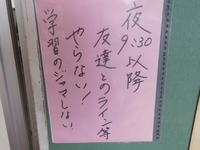 夜9:30以降
友達とのライン等
やらない！
学習のジャマしない